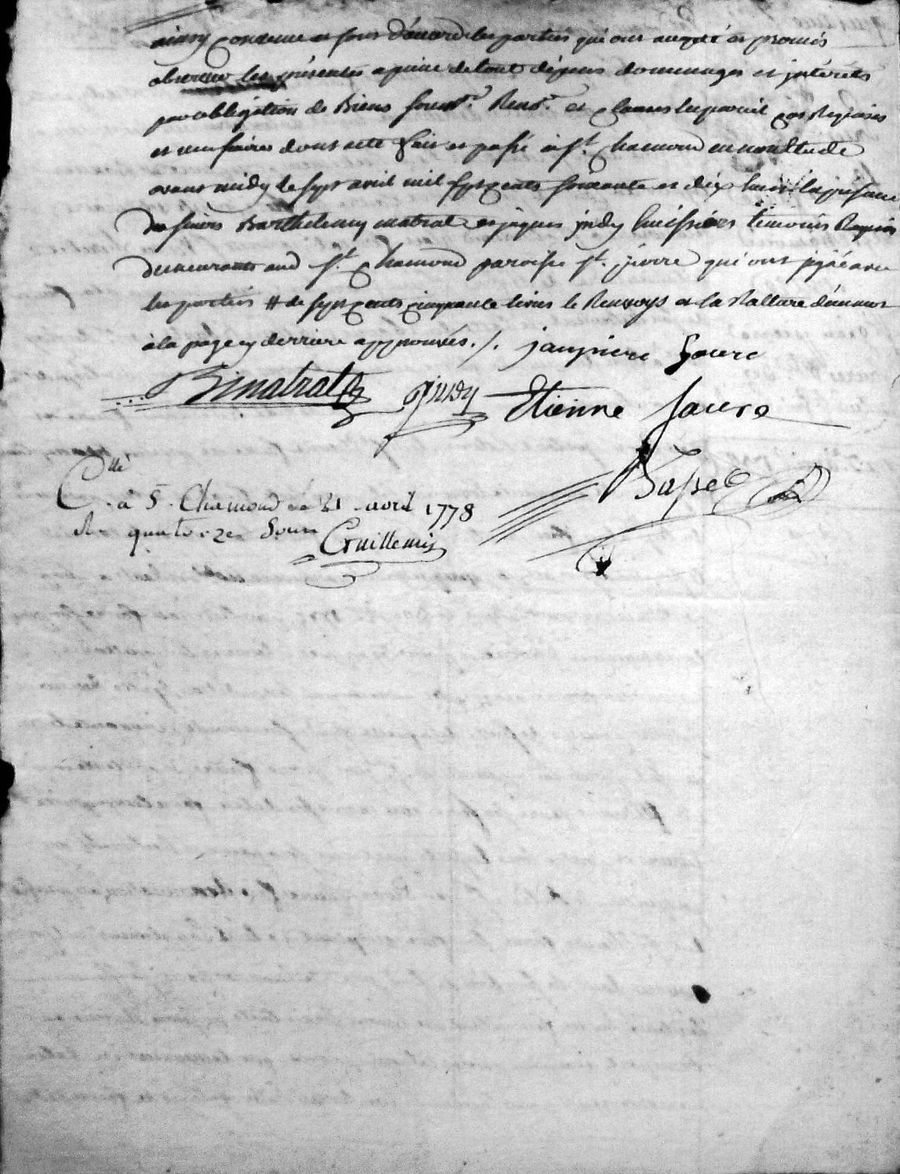 ainsy convenu et sont d'accord les parties qui ont accepté et promis
observer les présentes a peine de tout dépens dommages et intérets
par obbligation de Biens soum.ⁿ Ren.ⁿ et clauses
et ainsi fait dont acte fait et passé a S.ᵗ Chamond en nôtre étude
avant midy le sept avril mil sept cents soixante et dix huit en la présence
de sieurs Barthelemy matrat et jaques judy huissiers temoins Requis
demeurants aud S.ᵗ Chamond paroisse S.ᵗ pierre qui ont signé avec
les parties # de sept cents cinquante livres le Renvoys et la Rature
à la page cy derriere approuvés ./. jean pierre faure
B matrat judy Etienne faure
Bajard
C.ᵗˡᵉ à S.ᵗ Chamond le 21 avril 1778
R. quatorze sous
Guillemin